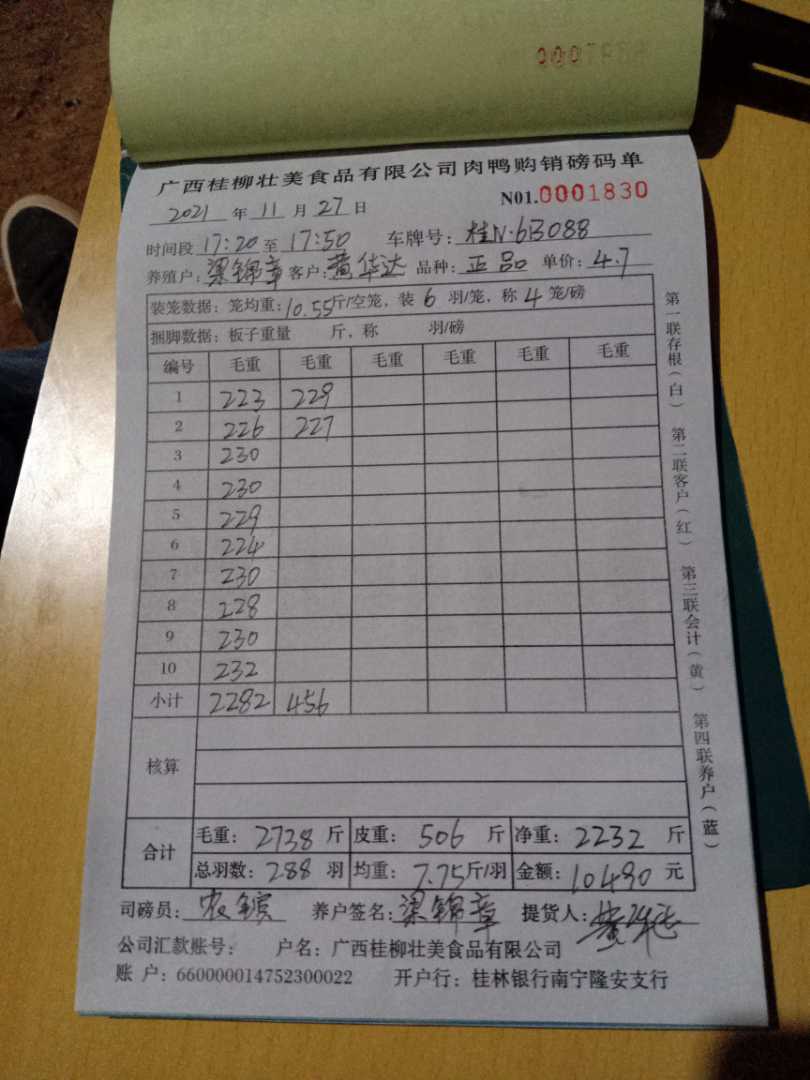 广西桂柳壮美食品有限公司肉鸭购销磅码单
2021 年 11 月 27 日 N01.0001830
时间段 17:20 至 17:50 车牌号: 桂N·6B088
养殖户: 梁锦章 客户: 黄华达 品种: 正品 单价: 4.7
装笼数据: 笼均重: 10.55 斤/空笼, 装 6 羽/笼, 称 4 笼/磅
捆脚数据: 板子重量 斤, 称 羽/磅
编号 毛重 毛重 毛重 毛重 毛重 毛重
1 223 229
2 226 227
3 230
4 230
5 229
6 224
7 230
8 228
9 230
10 232
小计 2282 456
核算
合计 毛重: 2738 斤 皮重: 506 斤 净重: 2232 斤
总羽数: 288 羽 均重: 7.75 斤/羽 金额: 10490 元
司磅员: 农 养户签名: 梁锦章 提货人:
公司汇款账号: 户名: 广西桂柳壮美食品有限公司
账 户: 660000014752300022 开户行: 桂林银行南宁隆安支行
第一联存根(白) 第二联客户(红) 第三联会计(黄) 第四联养户(蓝)